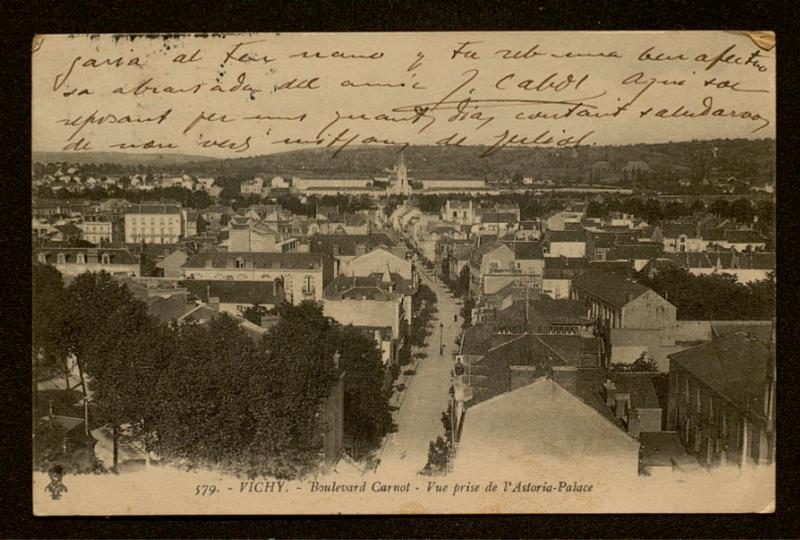 garia al Feu nano y Tu reb una ben afectuo
sa abrasada del amic J. Cabot Aquí soc
reposant per uns quants dias contant saludarvos
de nou vers mitjans de Juliol.
579. - VICHY. - Boulevard Carnot - Vue prise de l'Astoria-Palace